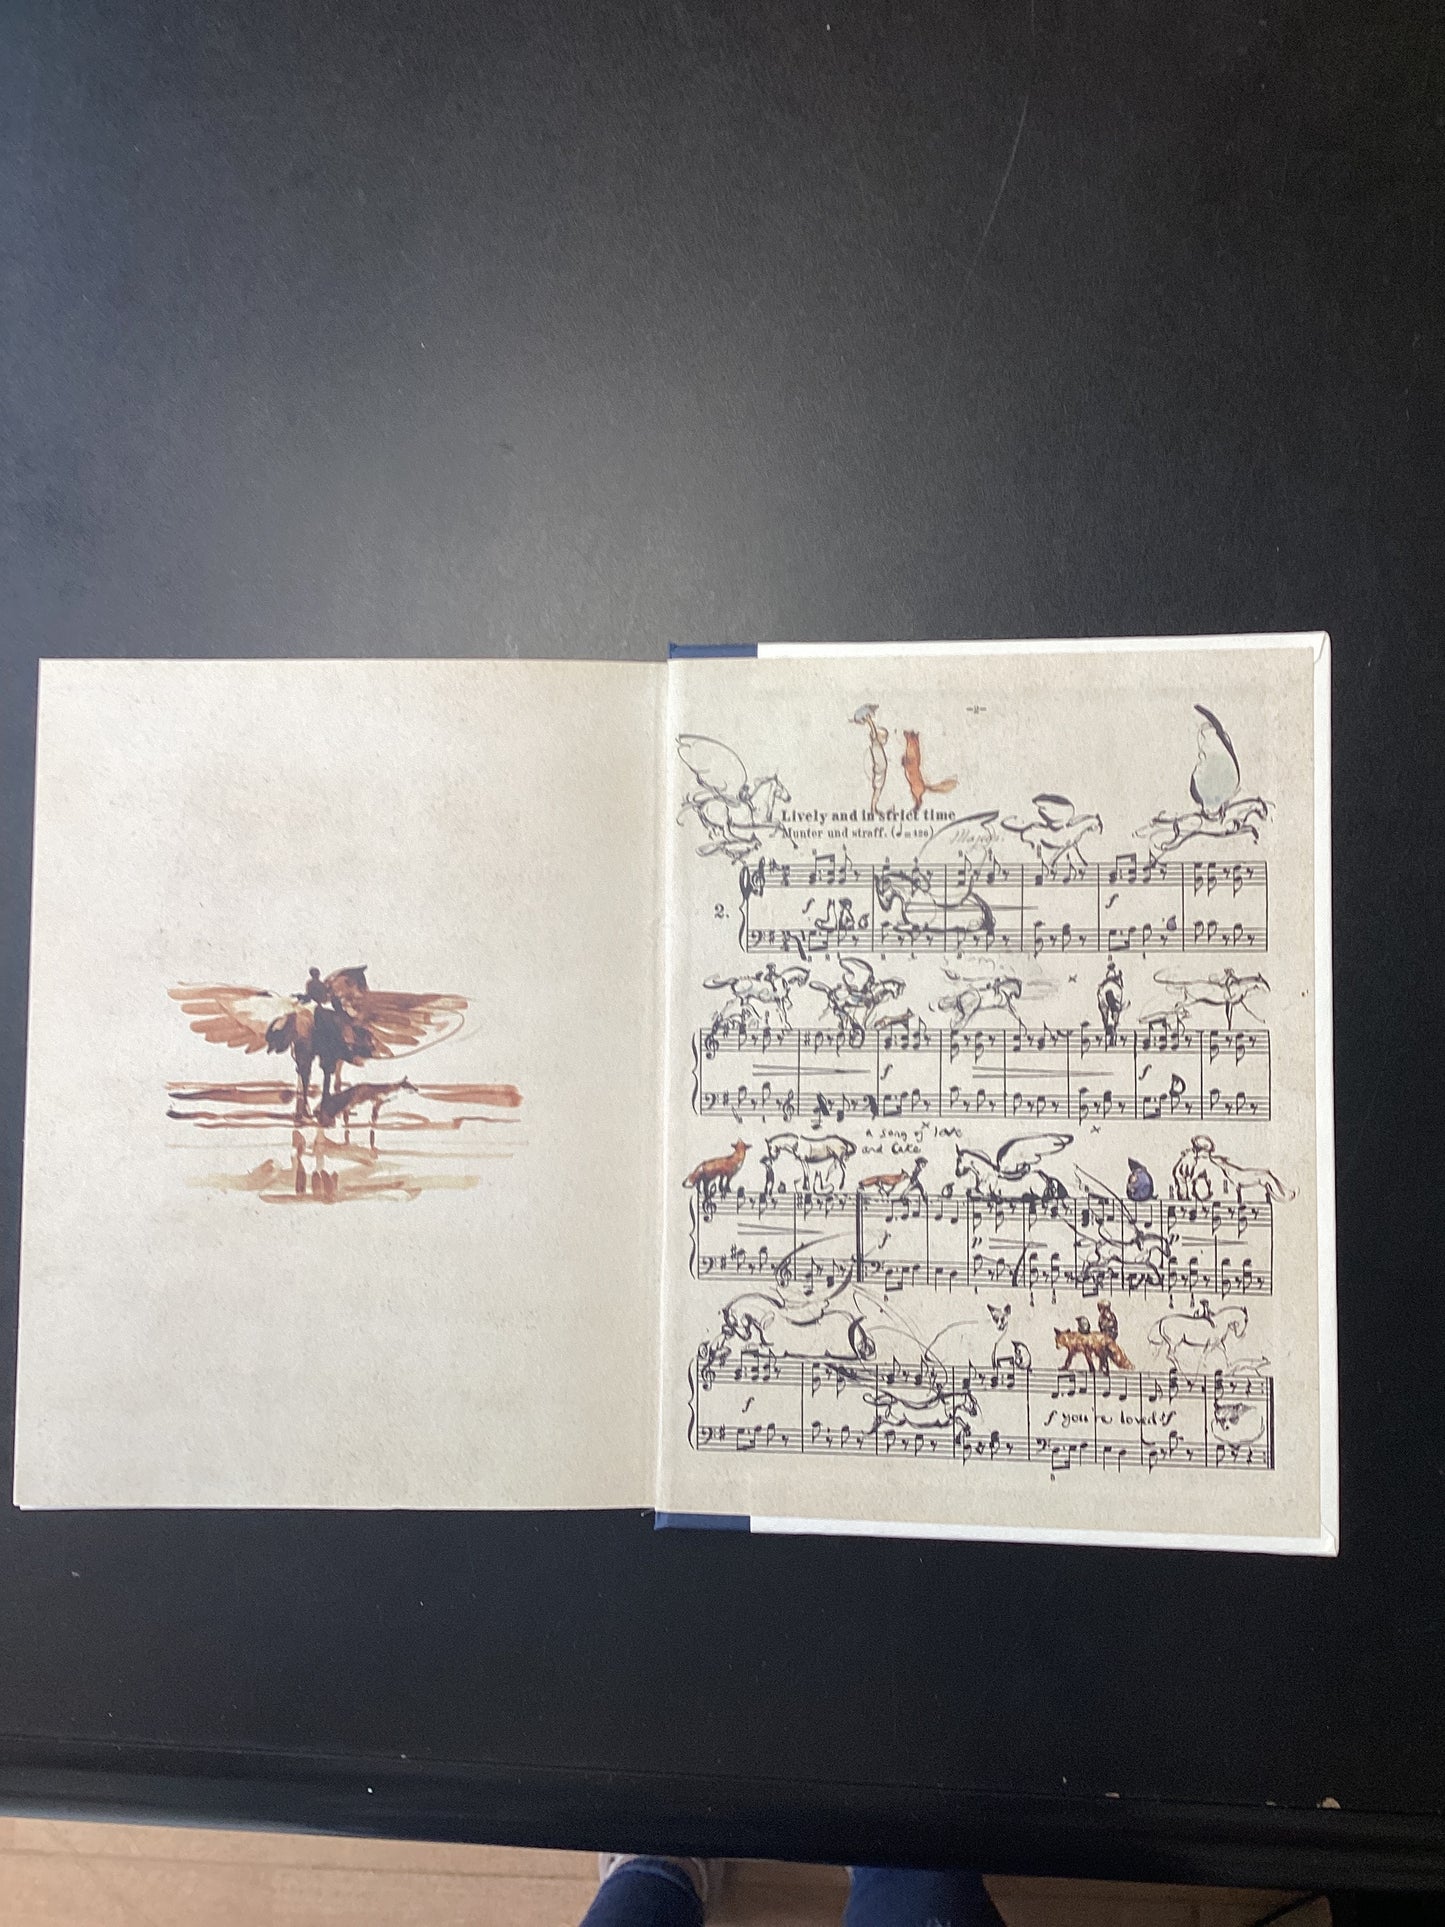 -2-
Lively and in strict time
Munter und straff. (♩=120)
2.
f
f
f
f
a song of love
and cake
f
p
p
f
f you're loved f